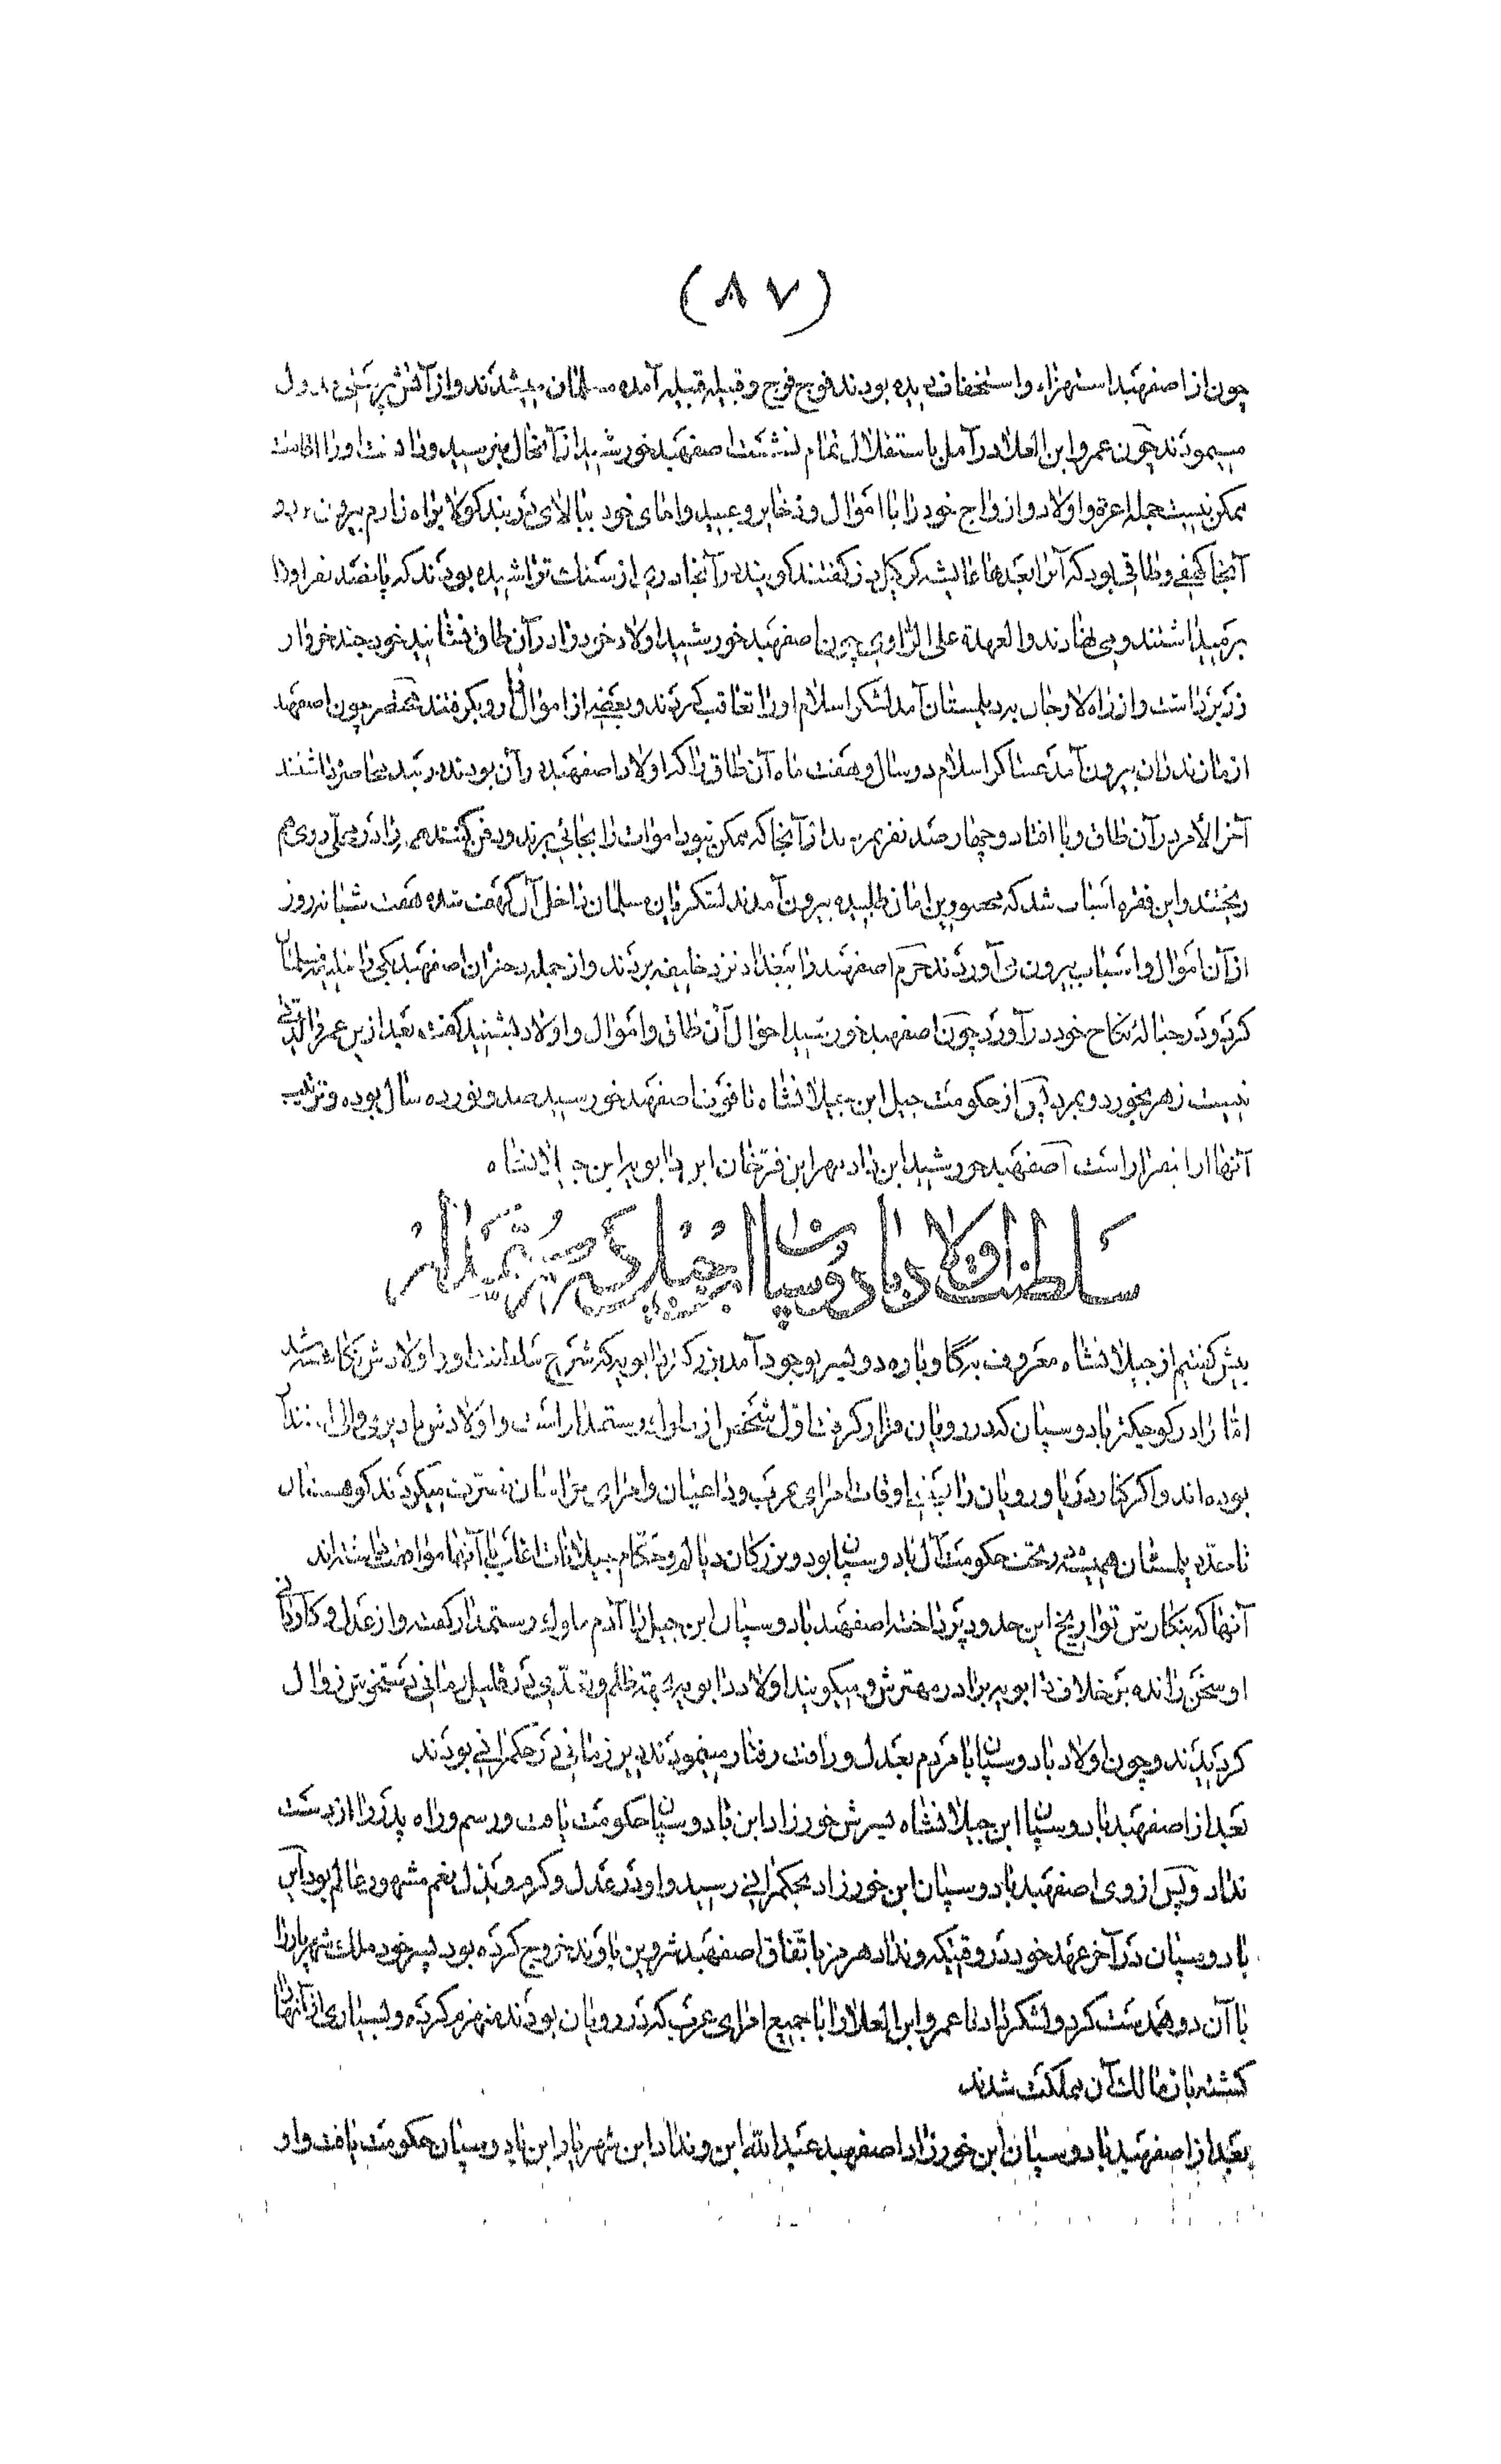 (۸۷)
چون از اصفهبد استهزاء و استخفاف دیده بودند فوج فوج و قبیله قبیله آمده مسلمان میشدند و از آتش پرستی عدول
مینمودند چون عمرو ابن العلاء در آمل باستقلال تمام نشست اصفهبد خورشید از آنحال بترسید و دانست او را اقامت
ممکن نیست جمله اعزة و اولاد و ازواج خود را با اموال و ذخایر و عبید و امای خود ببالای دربند کولا براه زارم بیرون برد و
آنجا کهفی و طاقی بود که آنرا بعدها عایشه کرکیل دز گفتند گویند در آنجا دری از سنگ تراشیده بودند که پانصد نفر او را
برمیداشتند و می نهادند و العهدة علی الراوی چون اصفهبد خورشید اولاد خود را در آن طاق نشانید خود چند خروار
زر برداشت و از راه لارجان به دیلمستان آمد لشکر اسلام او را تعاقب کردند و بعضی از اموال را از او بگرفتند چون اصفهبد
از مازندران بیرون آمد عساکر اسلام دو سال و هفت ماه آن طاق را که اولاد اصفهبد در آن بودند در بند محاصره داشتند
آخر الأمر در آن طاق وبا افتاد و چهار صد نفر بمردند از آنجا که ممکن نبود اموات را بجائی برند و دفن کنند همه را در محلی روی هم
ریختند و این فقره اسباب شد که محصورین امان طلبیده بیرون آمدند لشکریان مسلمان داخل آن کهف شده هفت شبانه روز
از آن اموال و اسباب بیرون می آوردند حرم اصفهبد را ببغداد نزد خلیفه بردند و از جمله دختران اصفهبد یکی را خلیفه مسلمان
کرد و در حباله نکاح خود در آورد چون اصفهبد خورشید احوال آن طاق و اموال و اولاد بشنید گفت بعد از این عمر را لذتی
نیست زهر بخورد و بمرد از حکومت جیل ابن جیلانشاه تا فوت اصفهبد خورشید صد و نوزده سال بوده و ترتیب
آنها از اینقرار است اصفهبد خورشید ابن داد مهر ابن فرخان ابن دابویه ابن جیلانشاه
سلطنت اولاد بادوسپان ابن جیل
پیش گفتیم از جیلانشاه معروف به گاوباره دو پسر بوجود آمد بزرگتر دابویه که شرح سلطنت او و اولادش نگاشته شد
اما برادر کوچکتر بادوسپان که در رویان قرار گرفت اول شخص از ملوک رستمدار است و اولادش
بوده اند و اگر کنار دریا و رویان را بعضی اوقات امرای عرب و داعیان و امرای خراسان تصرف میکردند کوهستان
تا حد دیلمستان همیشه در تحت حکومت آل بادوسپان بود و بزرگان دیالم و حکام جیلانات اغلب با آنها مواصلت داشته اند
آنها که بنگارش تواریخ این حدود پرداخته اصفهبد بادوسپان ابن جیل را آدم ملوک رستمدار گفته و از عدل و کاردانی
او سخن رانده بر خلاف دابویه برادر مهترش و میگویند اولاد دابویه بجهة ظلم و تعدی در قلیل زمانی دستخوش زوال
گردیدند و چون اولاد بادوسپان با مردم بعدل و رأفت رفتار مینمودند دیر زمانی در حکمرانی بودند
بعد از اصفهبد بادوسپان ابن جیلانشاه پسرش خورزاد ابن بادوسپان حکومت یافت و رسم و راه پدر را از دست
نداد و پس از وی اصفهبد بادوسپان ابن خورزاد بحکمرانی رسید و او در عدل و کرم و بذل نعم مشهور عالم بود این
بادوسپان در آخر عهد خود در وقتیکه ونداد هرمز باتفاق اصفهبد شروین باوند خروج کرده بود پسر خود ملک شهریار را
با آن دو همدست کرد و لشکر داد تا عمرو ابن العلا را با جمیع امرای عرب که در رویان بودند منهزم کرده و بسیاری از آنها را
کشته باز مالک آن مملکت شدند
بعد از اصفهبد بادوسپان ابن خورزاد اصفهبد عبد الله ابن ونداد ابن شهریار ابن بادوسپان حکومت یافت و او